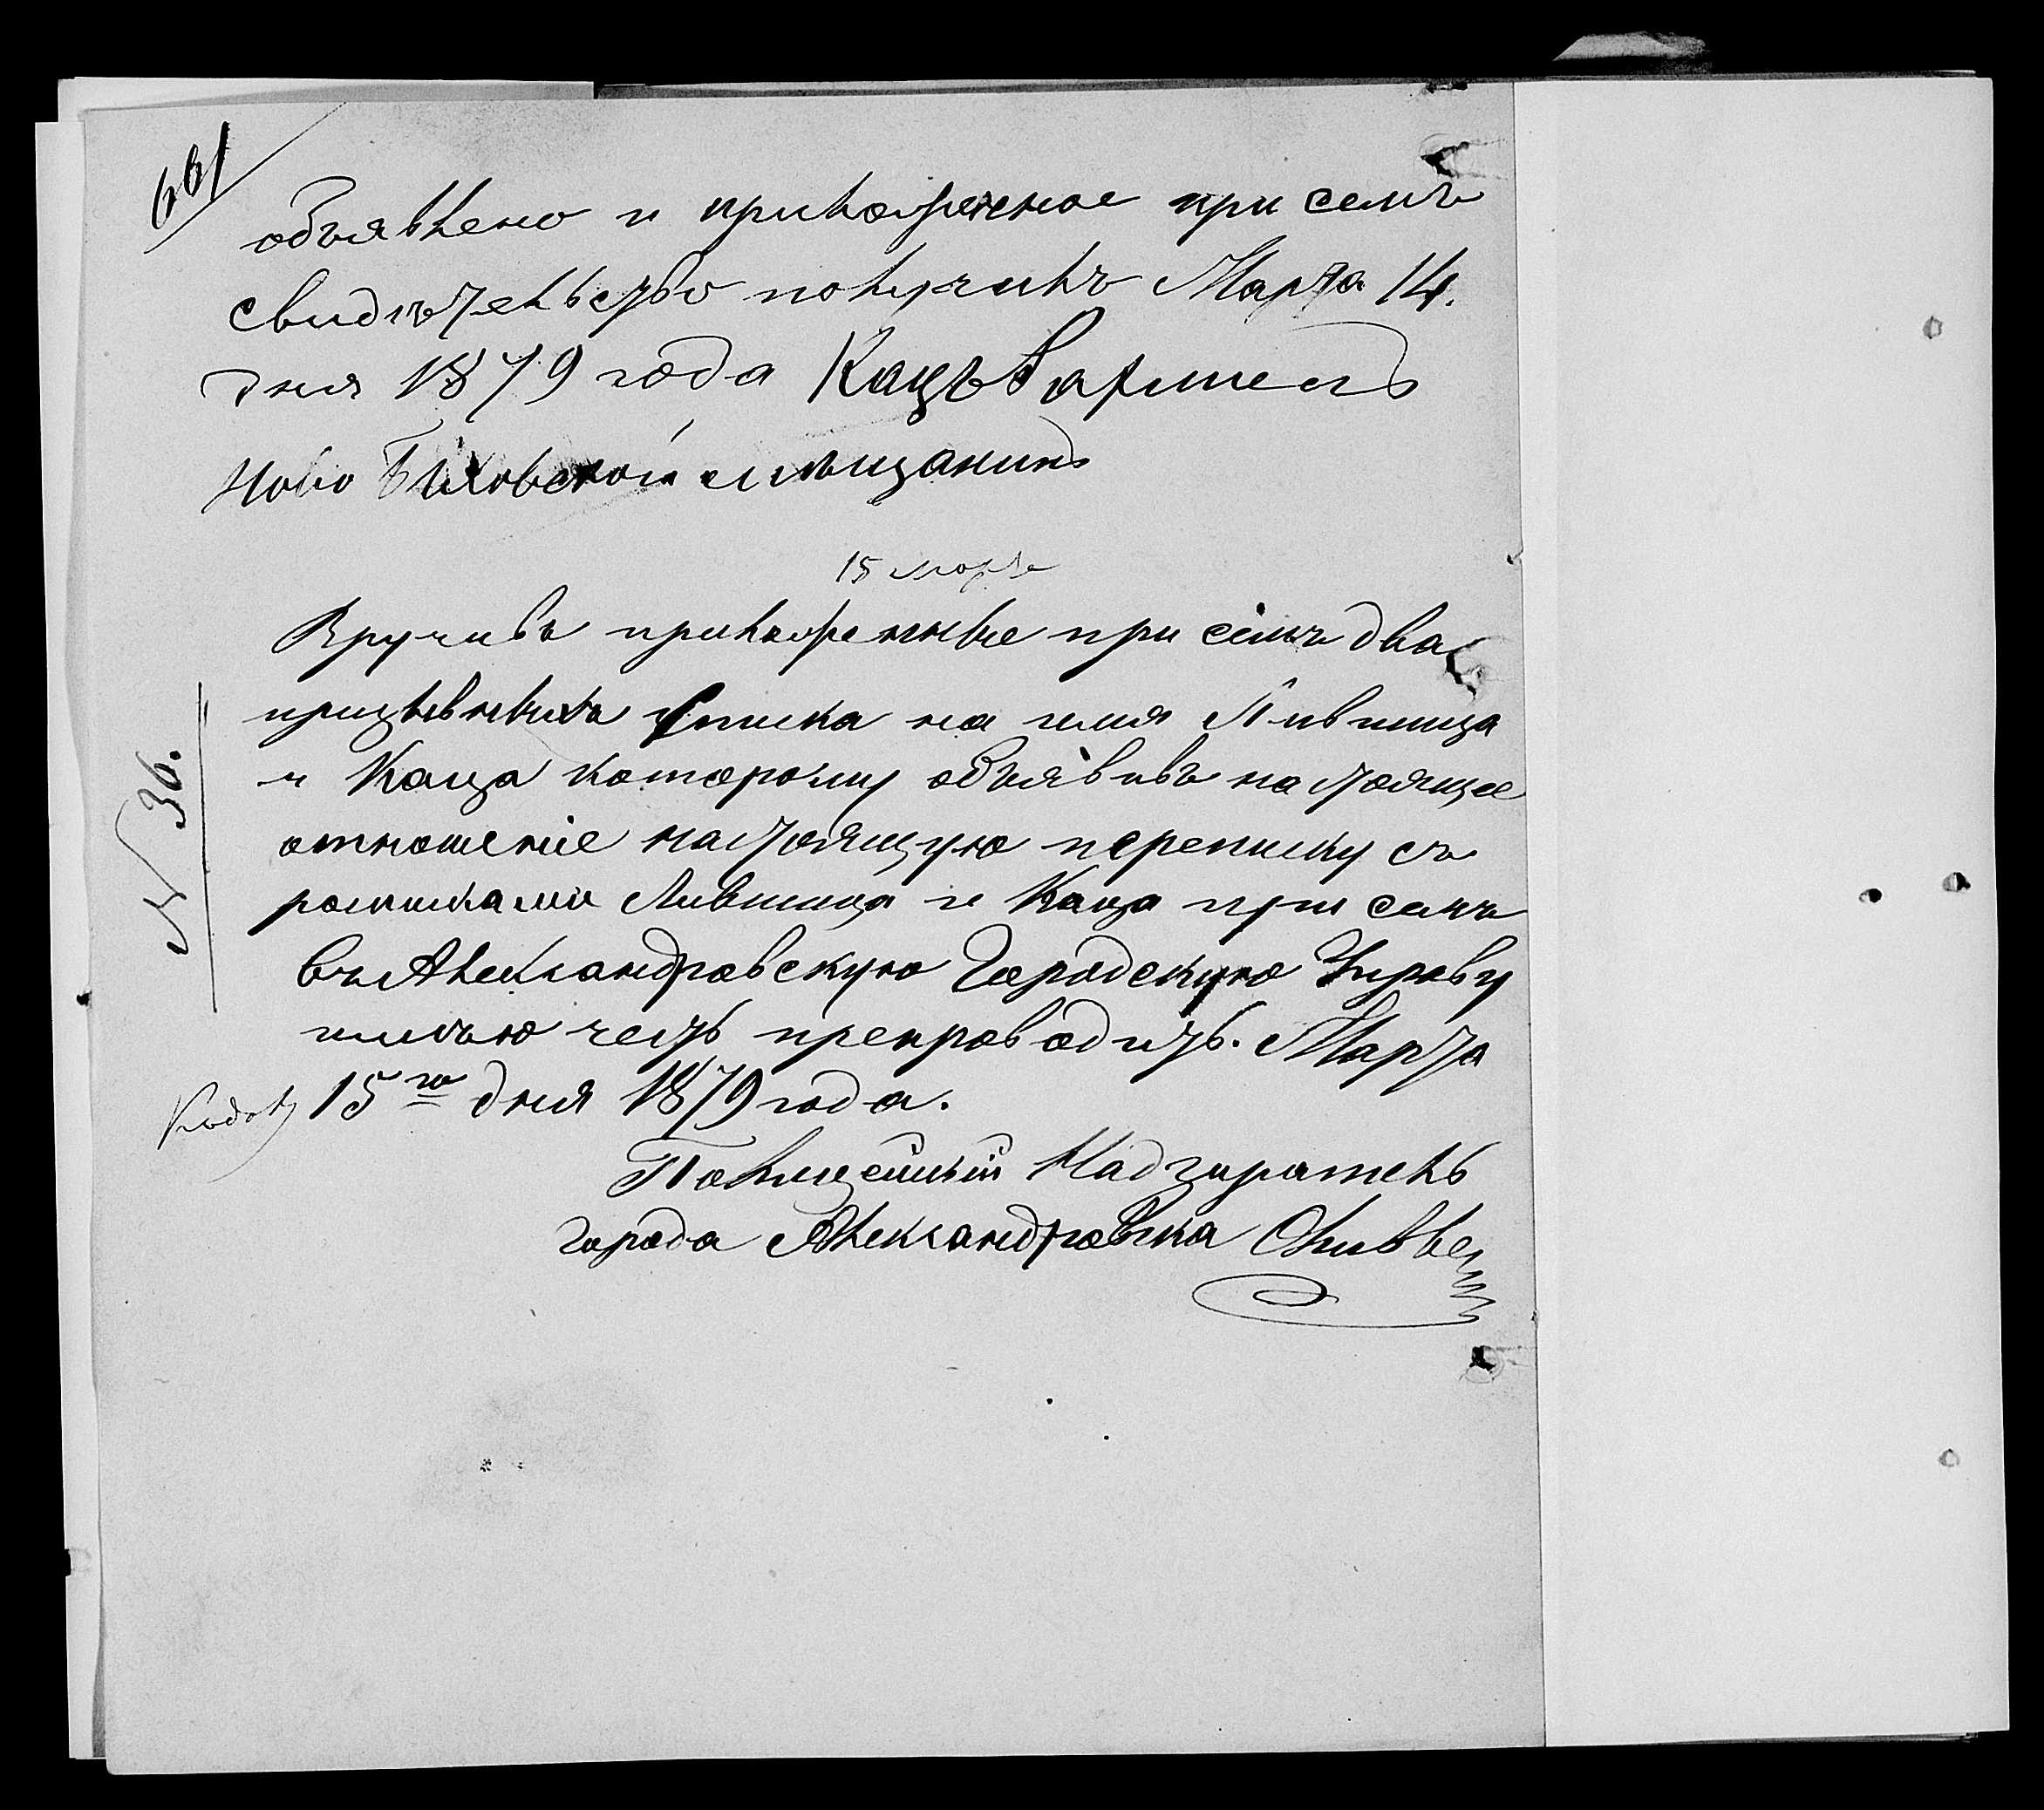 661
объявлено и приложеное при семъ
свидѣтельство получилъ Марта 14.
дня 1879 года Кацъ
Ново Быховской мѣщанинъ
15 марта
Вручивъ приложенные при семъ два
призывныхъ списка на имя Лившица
и Каца которому объявивъ настоящее
отношеніе настоящую переписку съ
росписками Лившица и Каца при семъ
въ Александровскую Городскую Управу
имѣю честь препроводить. Марта
15го дня 1879 года.
Полицейскій Надзиратель
города Александровска
N 36.